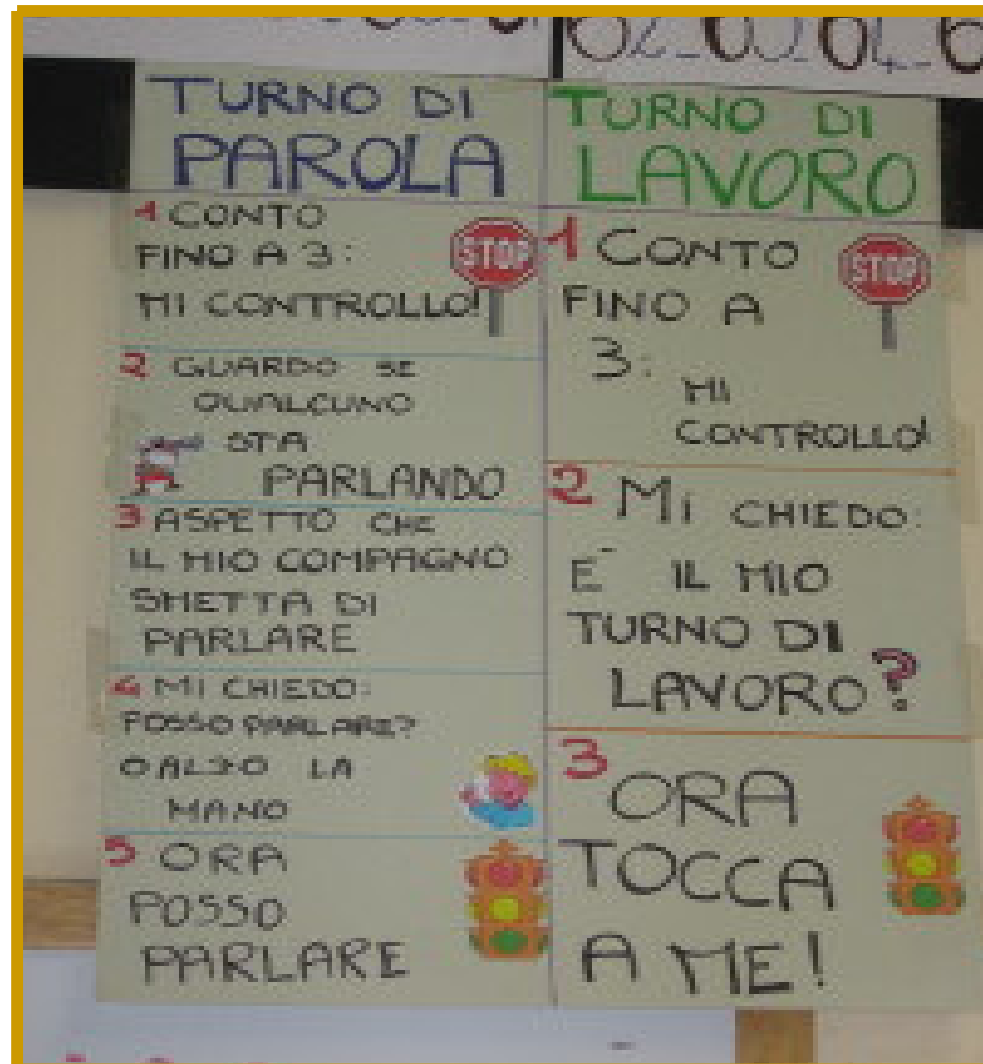 TURNO DI
PAROLA
1 CONTO
FINO A 3:
MI CONTROLLO!
STOP
2 GUARDO SE
QUALCUNO
STA
PARLANDO
3 ASPETTO CHE
IL MIO COMPAGNO
SMETTA DI
PARLARE
4 MI CHIEDO:
POSSO PARLARE?
O ALZO LA
MANO
5 ORA
POSSO
PARLARE
TURNO DI
LAVORO
1 CONTO
FINO A
3:
MI
CONTROLLO!
STOP
2 Mi CHIEDO:
E' IL MIO
TURNO DI
LAVORO?
3 ORA
TOCCA
A ME!